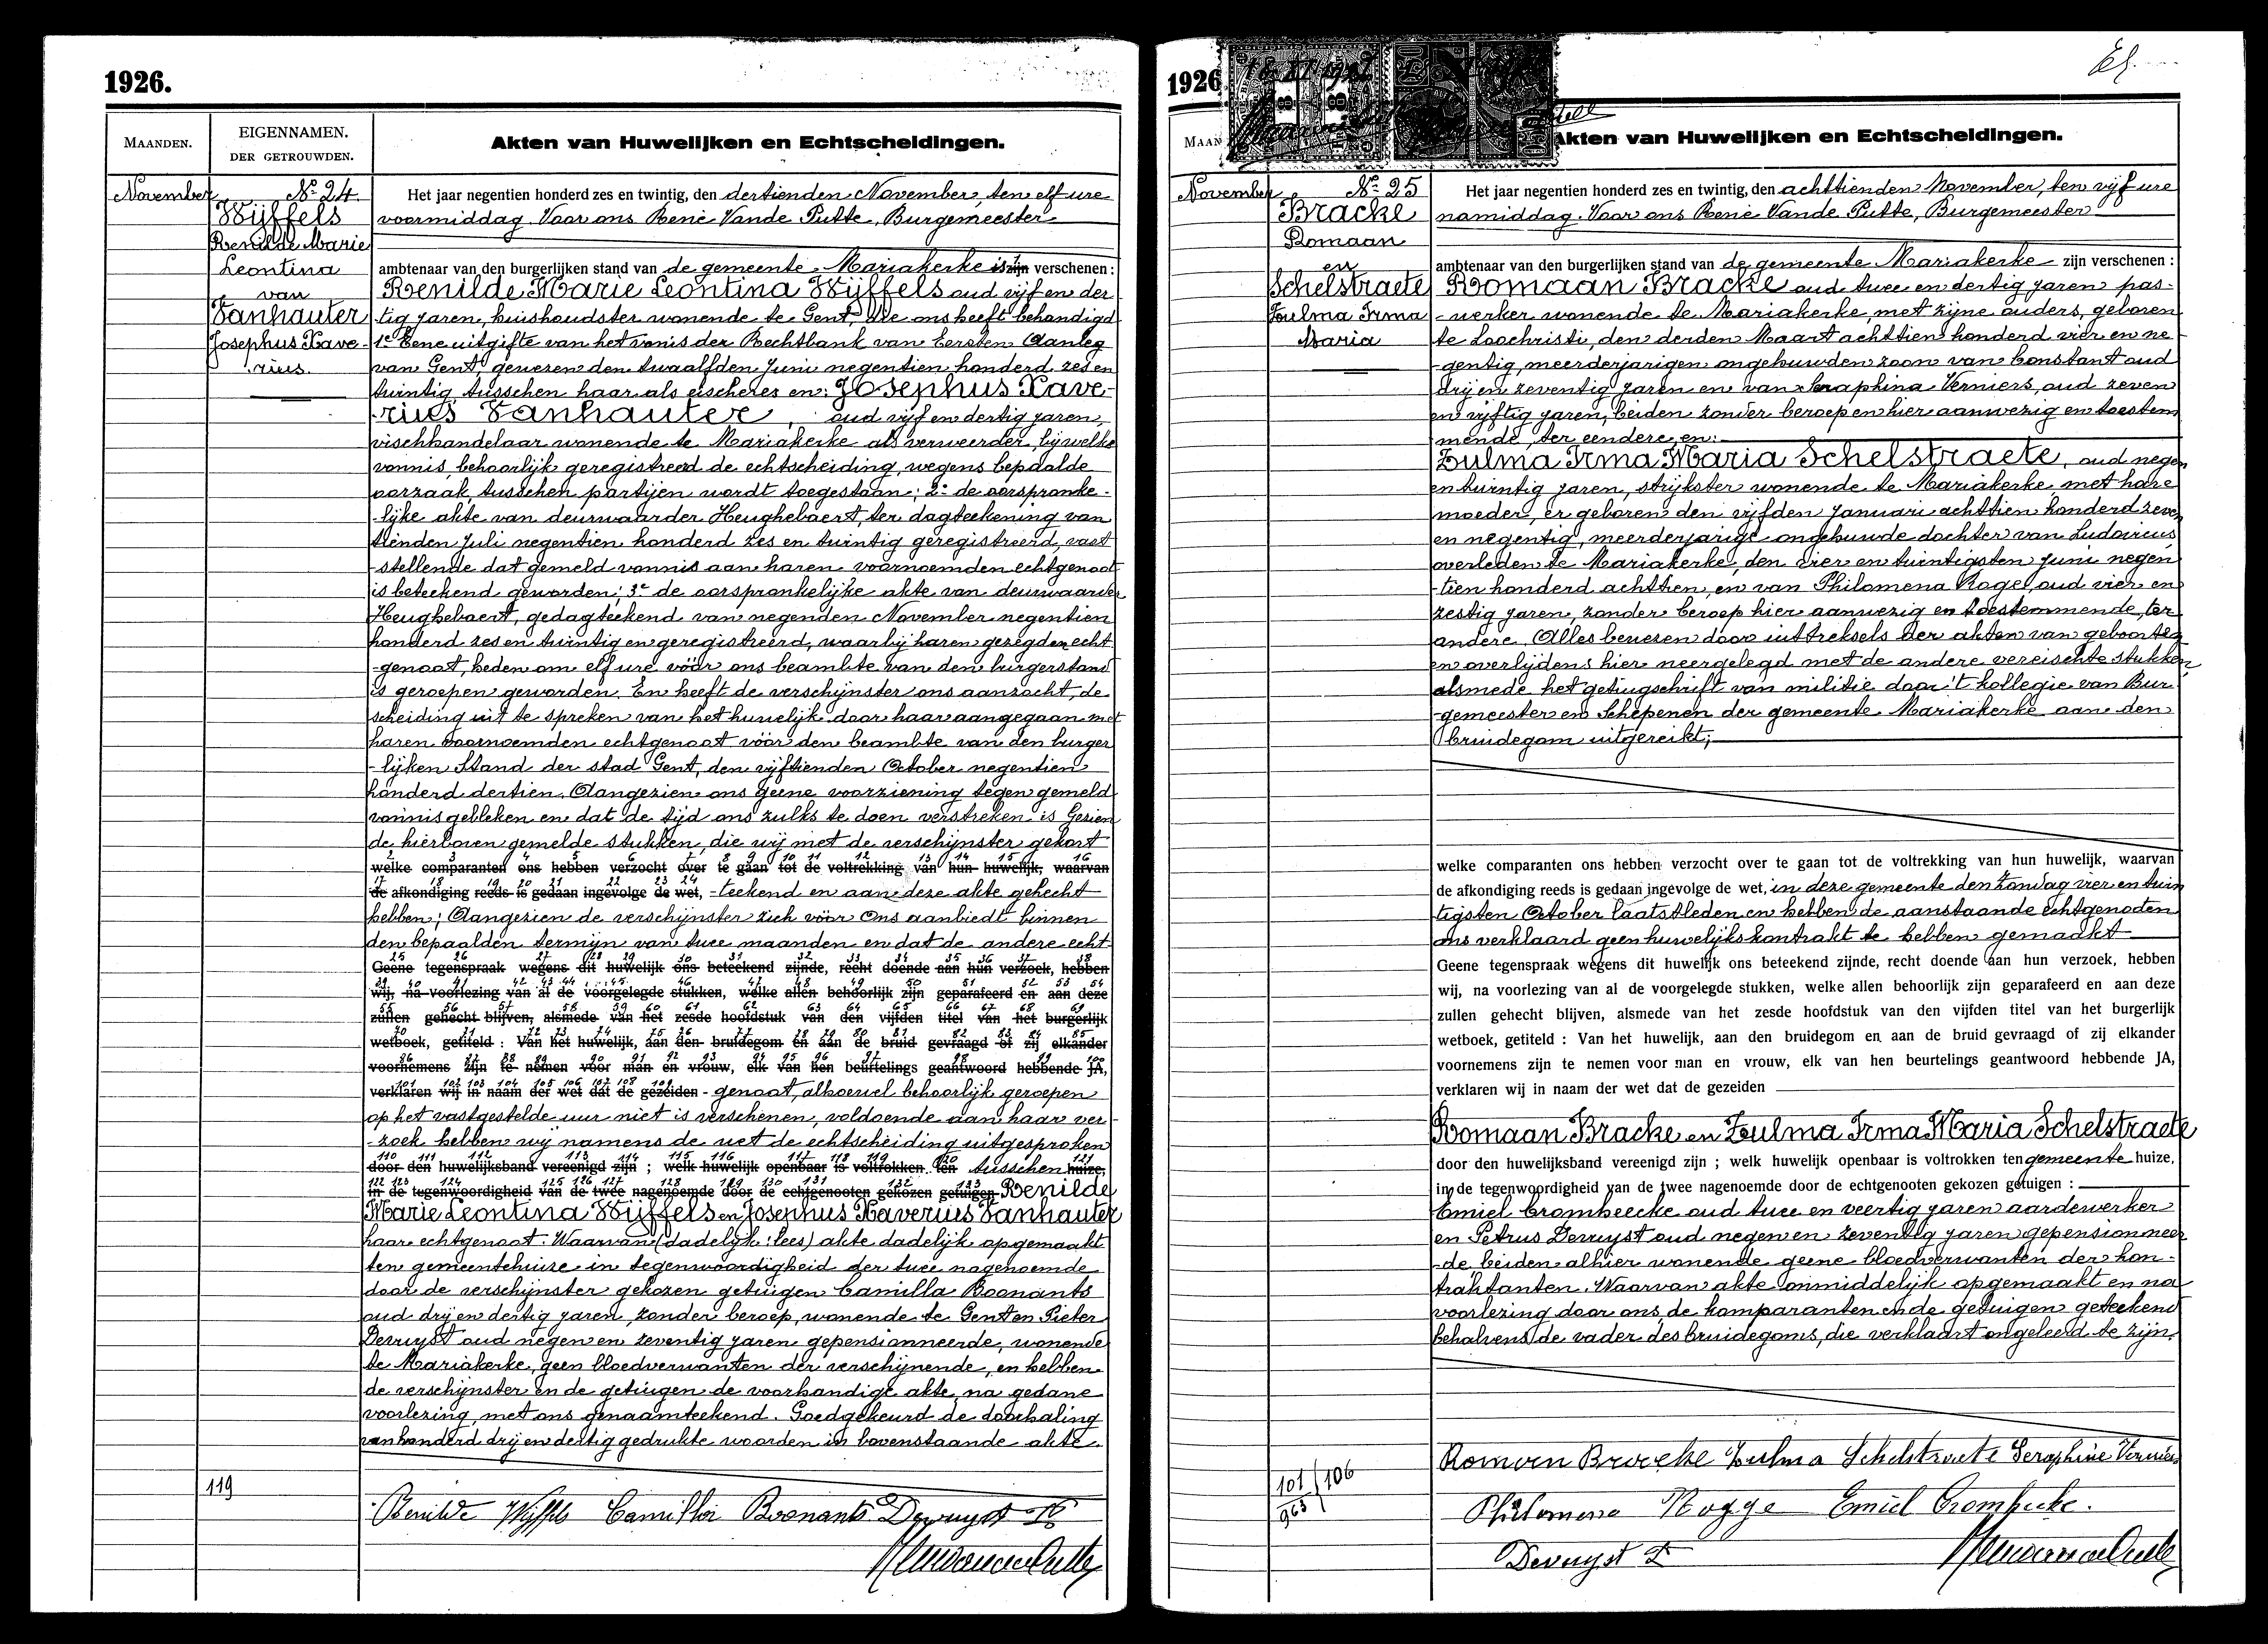 1926.
MAANDEN.
EIGENNAMEN.
DER GETROUWDEN.
Akten van Huwelijken en Echtscheidingen.
November
No 24
Wijffels
Renilde Marie
Leontina
van
Vanhauter
Josephus Xave-
rius.
Het jaar negentien honderd zes en twintig, den dertienden November, ten elf ure
voormiddag. Voor ons René Vande Putte, Burgemeester
ambtenaar van den burgerlijken stand van de gemeente Mariakerke is zijn verschenen :
Renilde Marie Leontina Wijffels oud vijf en der
tig jaren, huishoudster wonende te Gent, die ons heeft behandigd
1e Eene uitgifte van het vonis der Rechtbank van Eersten Aanleg
van Gent, gewesen den twaalfden Juni negentien honderd zes en
twintig tusschen haar als eischeres en: Josephus Xave-
rius Vanhauter, oud vijf en dertig jaren,
vischhandelaar wonende te Mariakerke als verweerder, bij welke
vonnis, behoorlijk geregistreerd de echtscheiding, wegens bepaalde
oorzaak, tusschen partijen wordt toegestaan; 2e de oorspronke-
-lijke akte van deurwaarder Heughebaert, ter dagteekening van
tienden Juli negentien honderd zes en twintig geregistreerd, vast
-stellende dat gemeld vonnis aan haren voornoemden echtgenoot
is beteekend geworden; 3e de oorspronkelijke akte van deurwaarder
Heughebaert, gedagteekend van negenden November negentien
honderd zes en twintig en geregistreerd, waarbij haren gezegden echt
-genoot, heden om elf ure vóór ons beambte van den burgerstand
is geroepen geworden. En heeft de verschijnster ons aanzocht, de
scheiding uit te spreken van het huwelijk door haar aangegaan met
haren voornoemden echtgenoot vóór den beambte van den burger
-lijken Stand der stad Gent, den vijftienden October negentien
honderd dertien. Aangezien ons geene voorziening tegen gemeld
vonnis gebleken en dat de tijd ons zulks te doen verstreken is Gezien
de hierboven gemelde stukken, die wij met de verschijnster gekort
welke comparanten ons hebben verzocht over te gaan tot de voltrekking van hun huwelijk, waarvan
de afkondiging reeds is gedaan ingevolge de wet, -teekend en aan deze akte gehecht
hebben; Aangezien de verschijnster zich vóór Ons aanbiedt binnen
den bepaalden termijn van twee maanden en dat de andere echt
Geene tegenspraak wegens dit huwelijk ons beteekend zijnde, recht doende aan hun verzoek, hebben
wij, na voorlezing van al de voorgelegde stukken, welke allen behoorlijk zijn geparafeerd en aan deze
zullen gehecht blijven, alsmede van het zesde hoofdstuk van den vijfden titel van het burgerlijk
wetboek, getiteld : Van het huwelijk, aan den bruidegom en aan de bruid gevraagd of zij elkander
voornemens zijn te nemen voor man en vrouw, elk van hen beurtelings geantwoord hebbende JA,
verklaren wij in naam der wet dat de gezeiden - genoot, alhoewel behoorlijk geroepen
op het vastgestelde uur niet is verschenen, voldoende aan haar ver-
-zoek hebben wij namens de wet de echtscheiding uitgesproken
door den huwelijksband vereenigd zijn ; welk huwelijk openbaar is voltrokken ten tusschen huize,
in de tegenwoordigheid van de twee nagenoemde door de echtgenooten gekozen getuigen Renilde
Marie Leontina Wijffels en Josephus Xaverius Vanhauter
haar echtgenoot. Waarvan (dadelijk: lees) akte dadelijk opgemaakt
ten gemeentehuize in tegenwoordigheid der twee nagenoemde
door de verschijnster gekozen getuigen Camilla Boonants
oud drij en dertig jaren, zonder beroep, wonende te Gent en Pieter
Devuyst oud negen en zeventig jaren gepensionneerde, wonende
te Mariakerke, geen bloedverwanten der verschijnende, en hebben
de verschijnster en de getuigen de voorhandige akte, na gedane
voorlezing, met ons genaamteekend. Goedgekeurd de doorhaling
van honderd drij en dertig gedrukte woorden in bovenstaande akte.
119
Renilde Wijffels Camilla Boonants Devuyst P
1926
Akten van Huwelijken en Echtscheidingen.
November
No 25
Bracke
Romaan
en
Schelstraete
Zulma Irma
Maria
Het jaar negentien honderd zes en twintig, den achttienden November, ten vijf ure
namiddag. Voor ons René Vande Putte, Burgemeester
ambtenaar van den burgerlijken stand van de gemeente Mariakerke zijn verschenen :
Romaan Bracke oud twee en dertig jaren pas-
- werker wonende te Mariakerke, met zijne ouders, geboren
te Loochristi, den derden Maart achttien honderd vier en ne
-gentig, meerderjarigen ongehuwden zoon van Constant oud
drij en zeventig jaren en van Seraphina Verniers, oud zeven
en vijftig jaren, beiden zonder beroep en hier aanwezig en toestem
mende, ter eendere, en:
Zulma Irma Maria Schelstraete, oud negen
en twintig jaren, strijkster wonende te Mariakerke met hare
moeder, er geboren den vijfden Januari achttien honderd zeven
en negentig, meerderjarige ongehuwde dochter van Ludovicus
overleden te Mariakerke, den vier en twintigsten Juni negen
-tien honderd achttien, en van Philomena Rogge, oud vier en
zestig jaren, zonder beroep hier aanwezig en toestemmende, ter
andere. Alles bewezen door uittreksels der akten van geboorten
en overlijdens hier neergelegd met de andere vereischte stukken
alsmede het getuigschrift van militie door 't kollegie van Bur
-gemeester en Schepenen der gemeente Mariakerke aan den
bruidegom uitgereikt;
welke comparanten ons hebben verzocht over te gaan tot de voltrekking van hun huwelijk, waarvan
de afkondiging reeds is gedaan ingevolge de wet, in deze gemeente den Zondag vier en twin
tigsten October laatstleden en hebben de aanstaande echtgenoten
ons verklaard geen huwelijkskontrakt te hebben gemaakt
Geene tegenspraak wegens dit huwelijk ons beteekend zijnde, recht doende aan hun verzoek, hebben
wij, na voorlezing van al de voorgelegde stukken, welke allen behoorlijk zijn geparafeerd en aan deze
zullen gehecht blijven, alsmede van het zesde hoofdstuk van den vijfden titel van het burgerlijk
wetboek, getiteld : Van het huwelijk, aan den bruidegom en aan de bruid gevraagd of zij elkander
voornemens zijn te nemen voor man en vrouw, elk van hen beurtelings geantwoord hebbende JA,
verklaren wij in naam der wet dat de gezeiden
Romaan Bracke en Zulma Irma Maria Schelstraete
door den huwelijksband vereenigd zijn ; welk huwelijk openbaar is voltrokken ten gemeente huize,
in de tegenwoordigheid van de twee nagenoemde door de echtgenooten gekozen getuigen :
Emiel Crombeecke oud twee en veertig jaren aardewerker
en Petrus Devuyst oud negen en zeventig jaren gepensionneer
-de beiden alhier wonende geene bloedverwanten der kon-
traktanten. Waarvan akte onmiddelijk opgemaakt en na
voorlezing door ons, de komparanten en de getuigen geteekend
behalvens de vader des bruidegoms, die verklaart ongeleerd te zijn.
101/106
963
Romaan Bracke Zulma Schelstraete Seraphine Verniers
Philomena Rogge Emiel Crombecke.
Devuyst P